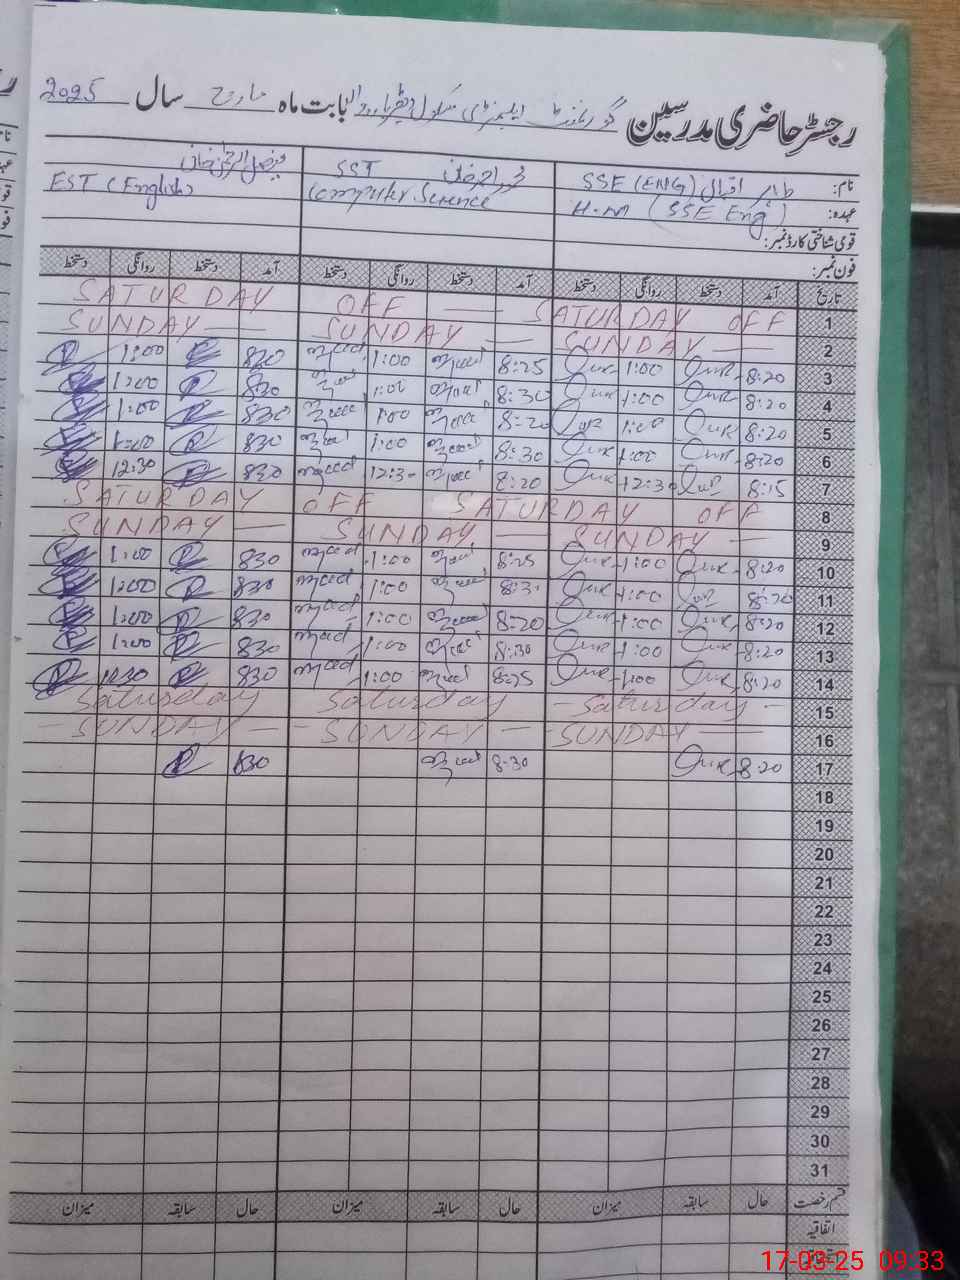 رجسٹر حاضری مدرسین گورنمنٹ ایلیمنٹری سکول بابت ماہ مارچ سال 2025
نام: طاہر اقبال SSE (ENG) SST فیضل الرحمٰن خان
عہدہ: H.M (SSE Eng) Computer Science EST (English)
قومی شناختی کارڈ نمبر:
فون نمبر:
تاریخ آمد دستخط روانگی دستخط آمد دستخط روانگی دستخط آمد دستخط روانگی دستخط
SATURDAY OFF — SATURDAY OFF 1
SUNDAY — SUNDAY — SUNDAY — 2
1:00 820 1:00 8:25 1:00 8:20 3
1:00 830 1:00 8:30 1:00 8:20 4
1:00 830 1:00 8:20 1:00 8:20 5
1:00 830 1:00 8:30 1:00 8:20 6
12:30 830 12:30 8:20 12:30 8:15 7
SATURDAY OFF SATURDAY OFF 8
SUNDAY — SUNDAY — SUNDAY — 9
1:00 830 1:00 8:25 1:00 8:20 10
1:00 830 1:00 8:30 1:00 8:20 11
1:00 830 1:00 8:20 1:00 8:20 12
1:00 830 1:00 8:30 1:00 8:20 13
830 1:00 8:25 1:00 8:20 14
Saturday Saturday – Saturday – 15
– SUNDAY – SUNDAY – SUNDAY — 16
830 8:30 8:20 17
18
19
20
21
22
23
24
25
26
27
28
29
30
31
قسم رخصت حال سابقہ میزان حال سابقہ میزان حال سابقہ میزان
اتفاقیہ
17-03-25 09:33